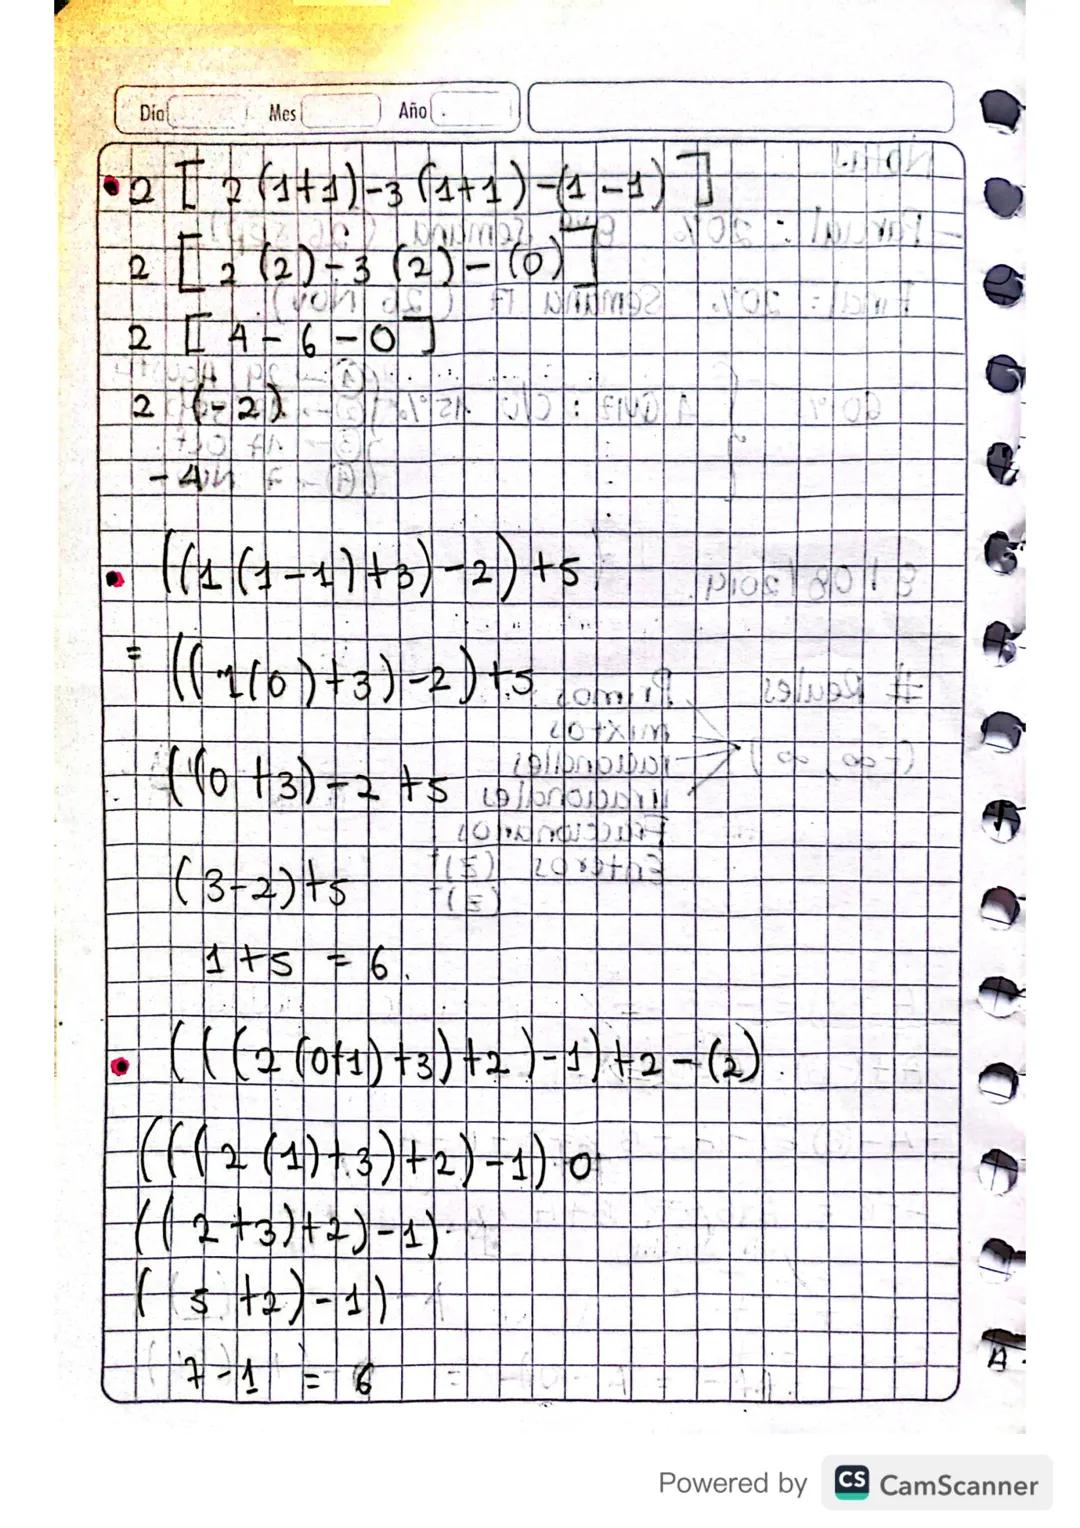 Día Mes Año
2 [ 2 (1+1)-3 (1+1)-(1-1) ]
2 [ 2 (2)-3 (2)-(0) ]
2 [ 4-6-0 ]
2 (-2)
-4
((1(1-1)+3)-2)+5
= ((1(0)+3)-2)+5
((0+3)-2+5
(3-2)+5
1+5 = 6.
(((2(0+1)+3)+2)-1)+2-(2).
(((2(1)+3)+2)-1) 0
((2+3)+2)-1)
( 5+2)-1)
7-1 = 6
Powered by CS CamScanner